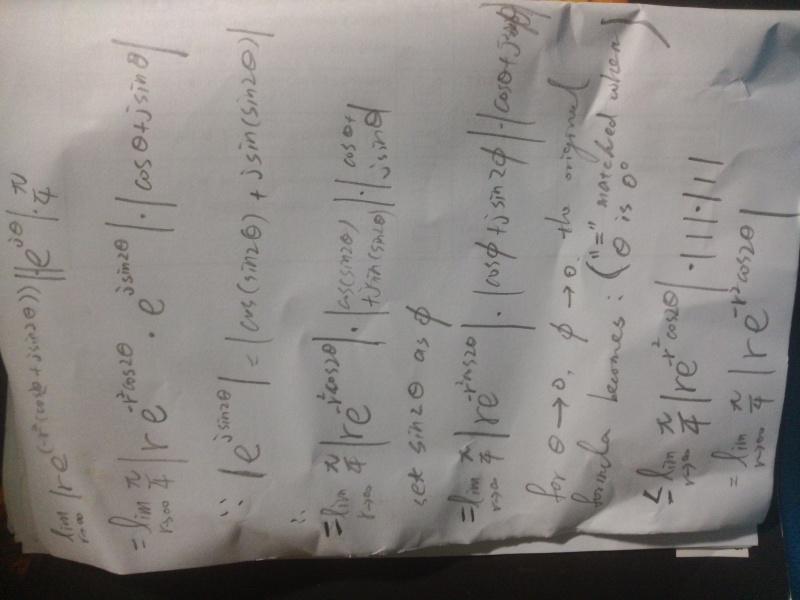 lim r→∞ |re^(-r²(cos2θ+jsin2θ))||e^jθ|·π/4
= lim r→∞ π/4 |re^-r²cos2θ · e^jsin2θ|·|cosθ+jsinθ|
∵ |e^jsin2θ| = |cos(sin2θ)+jsin(sin2θ)|
∴
= lim r→∞ π/4 |re^-r²cos2θ|·|cos(sin2θ)+jsin(sin2θ)|·|cosθ+jsinθ|
set sin2θ as ϕ
= lim r→∞ π/4 |re^-r²cos2θ|·|cosϕ+jsin2ϕ|·|cosθ+jsinθ|
for θ→0, ϕ→0, the original
formula becomes: ("=" matched when θ is 0°)
≤ lim r→∞ π/4 |re^-r²cos2θ|·|1|·|1|
= lim r→∞ π/4 |re^-r²cos2θ|